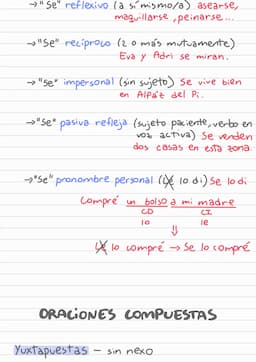 →"Se" reflexivo (a sí mismo/a) asearse,
maquillarse, peinarse...
→"Se" recíproco (2 o más mutuamente)
Eva y Adri se miran.
→"Se" impersonal (sin sujeto) Se vive bien
en Alfàz del Pi.
→"Se" pasiva refleja (sujeto paciente, verbo en
voz activa) Se venden
dos casas en esta zona.
→"Se" pronombre personal (Le lo di) Se lo di
Compré un bolso a mi madre
CD CI
lo le
⇓
Le lo compré → Se lo compré
ORACIONES COMPUESTAS
Yuxtapuestas – sin nexo